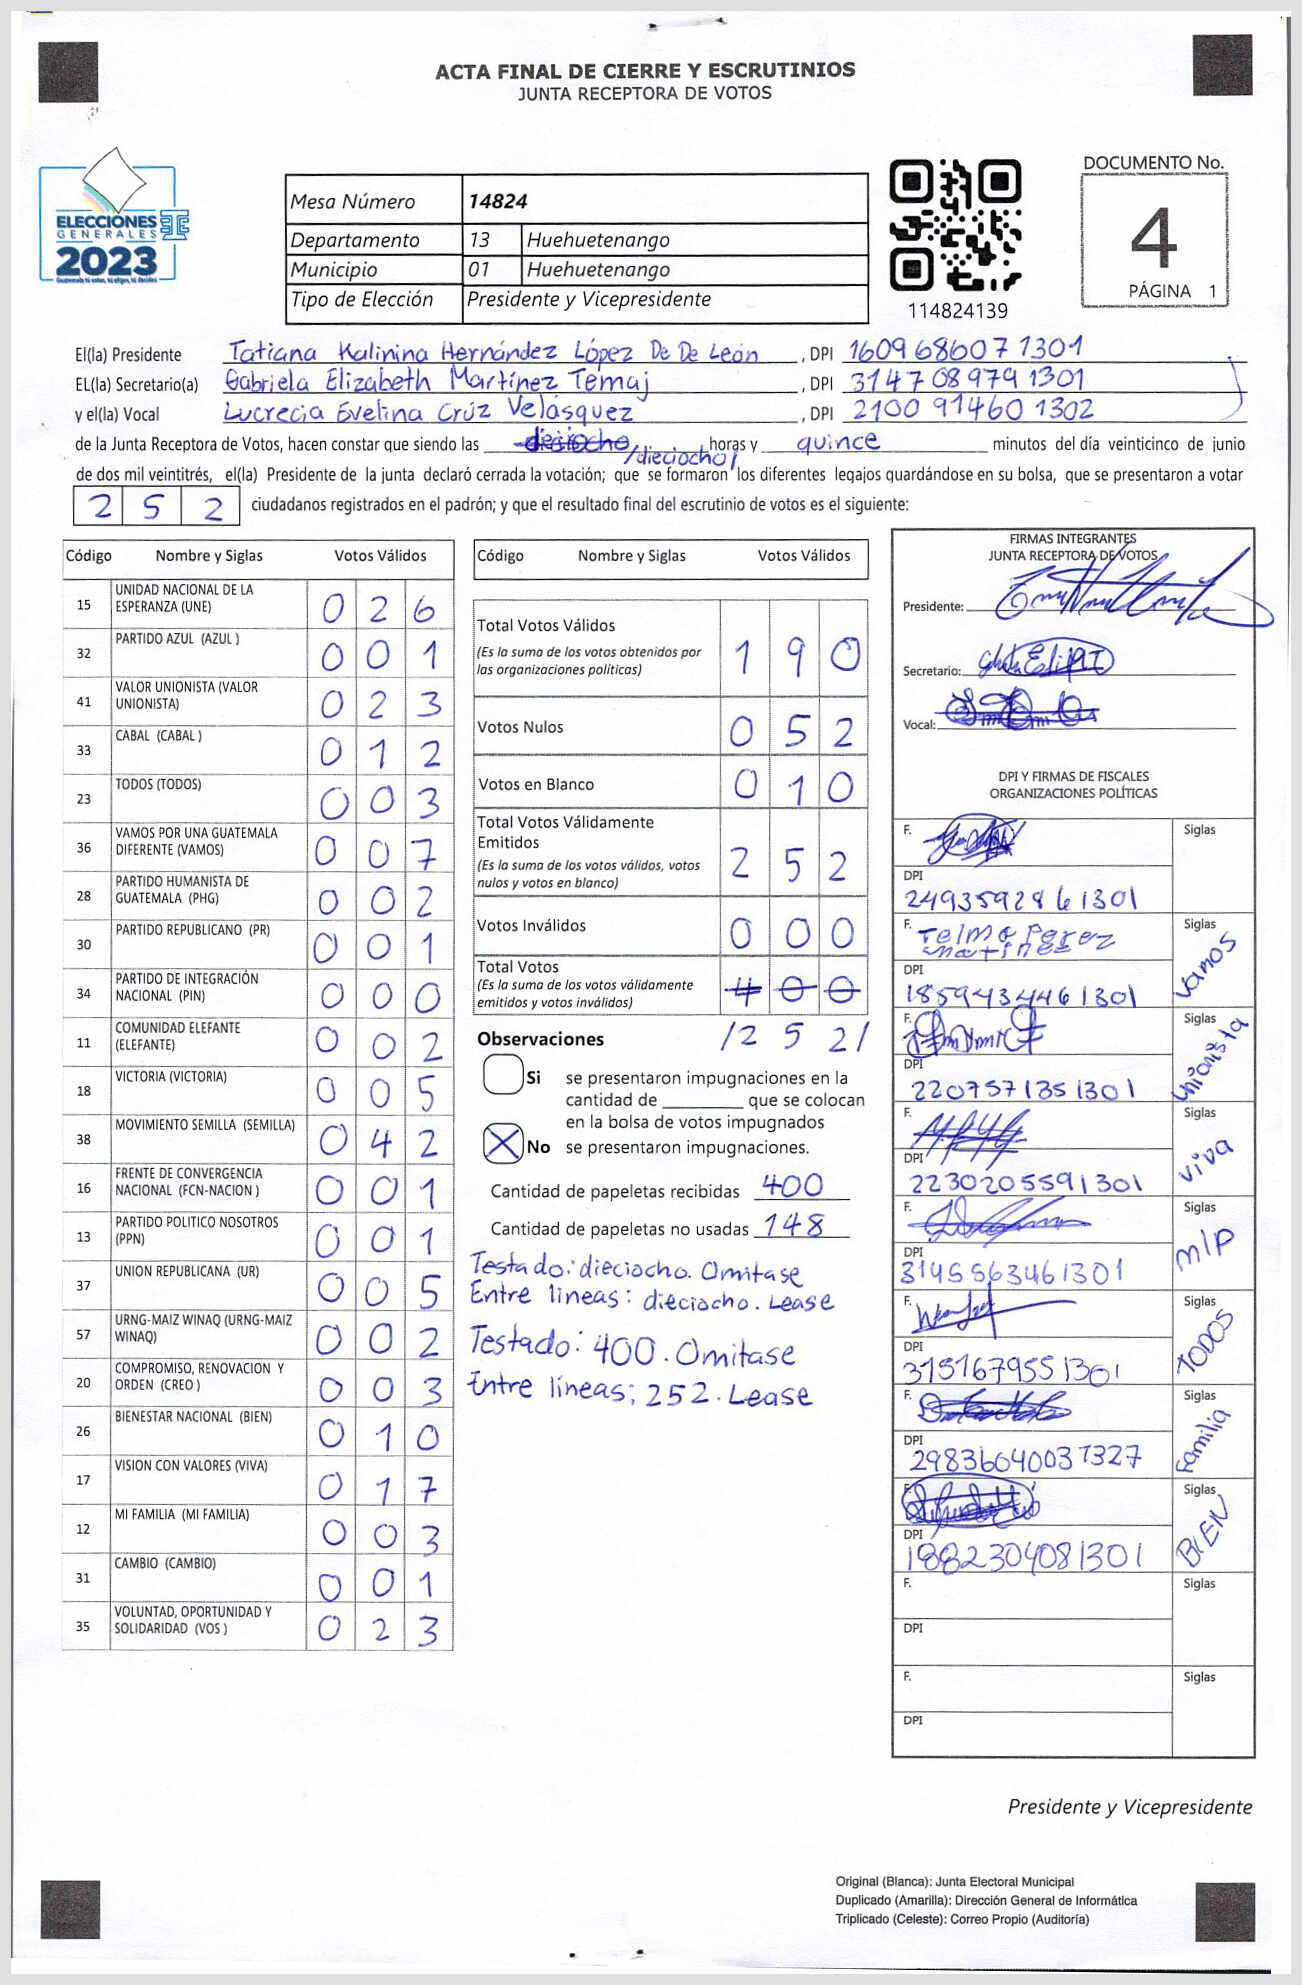 ACTA FINAL DE CIERRE Y ESCRUTINIOS
JUNTA RECEPTORA DE VOTOS
ELECCIONES
GENERALES
2023
Mesa Número 14824
Departamento 13 Huehuetenango
Municipio 01 Huehuetenango
Tipo de Elección Presidente y Vicepresidente
114824139
DOCUMENTO No.
4
PÁGINA 1
El(la) Presidente Tatiana Kalinina Hernández López De De León , DPI 1609 68607 1301
EL(la) Secretario(a) Gabriela Elizabeth Martínez Temaj , DPI 3147 08979 1301
y el(la) Vocal Lucrecia Evelina Crúz Velásquez , DPI 2100 91460 1302
de la Junta Receptora de Votos, hacen constar que siendo las dieciocho /dieciocho/ horas y quince minutos del día veinticinco de junio
de dos mil veintitrés, el(la) Presidente de la junta declaró cerrada la votación; que se formaron los diferentes legajos guardándose en su bolsa, que se presentaron a votar
252 ciudadanos registrados en el padrón; y que el resultado final del escrutinio de votos es el siguiente:
Código Nombre y Siglas Votos Válidos
15 UNIDAD NACIONAL DE LA ESPERANZA (UNE) 026
32 PARTIDO AZUL (AZUL ) 001
41 VALOR UNIONISTA (VALOR UNIONISTA) 023
33 CABAL (CABAL ) 012
23 TODOS (TODOS) 003
36 VAMOS POR UNA GUATEMALA DIFERENTE (VAMOS) 007
28 PARTIDO HUMANISTA DE GUATEMALA (PHG) 002
30 PARTIDO REPUBLICANO (PR) 001
34 PARTIDO DE INTEGRACIÓN NACIONAL (PIN) 000
11 COMUNIDAD ELEFANTE (ELEFANTE) 002
18 VICTORIA (VICTORIA) 005
38 MOVIMIENTO SEMILLA (SEMILLA) 042
16 FRENTE DE CONVERGENCIA NACIONAL (FCN-NACION ) 001
13 PARTIDO POLITICO NOSOTROS (PPN) 001
37 UNION REPUBLICANA (UR) 005
57 URNG-MAIZ WINAQ (URNG-MAIZ WINAQ) 002
20 COMPROMISO, RENOVACION Y ORDEN (CREO ) 003
26 BIENESTAR NACIONAL (BIEN) 010
17 VISION CON VALORES (VIVA) 017
12 MI FAMILIA (MI FAMILIA) 003
31 CAMBIO (CAMBIO) 001
35 VOLUNTAD, OPORTUNIDAD Y SOLIDARIDAD (VOS ) 023
Código Nombre y Siglas Votos Válidos
Total Votos Válidos 190
(Es la suma de los votos obtenidos por
las organizaciones políticas)
Votos Nulos 052
Votos en Blanco 010
Total Votos Válidamente
Emitidos 252
(Es la suma de los votos válidos, votos
nulos y votos en blanco)
Votos Inválidos 000
Total Votos
(Es la suma de los votos válidamente
emitidos y votos inválidos) 400
/252/
Observaciones
Si se presentaron impugnaciones en la
cantidad de ________ que se colocan
en la bolsa de votos impugnados
No se presentaron impugnaciones.
Cantidad de papeletas recibidas 400
Cantidad de papeletas no usadas 148
Testado: dieciocho. Omitase
Entre lineas: dieciocho. Lease
Testado: 400. Omitase
Entre líneas; 252. Lease
FIRMAS INTEGRANTES
JUNTA RECEPTORA DE VOTOS
Presidente:
Secretario:
Vocal:
DPI Y FIRMAS DE FISCALES
ORGANIZACIONES POLÍTICAS
F. Siglas
DPI
2493592861301
F. Telma Perez Martinez Siglas Vamos
DPI
1859434461301
F. Siglas Unionista
DPI
2207571351301
F. Siglas viva
DPI
2230205591301
F. Siglas MLP
DPI
3145563461301
F. Siglas TODOS
DPI
3151679551301
F. Siglas Familia
DPI
29836040031327
F. Siglas BIEN
DPI
1882304081301
F. Siglas
DPI
F. Siglas
DPI
Presidente y Vicepresidente
Original (Blanca): Junta Electoral Municipal
Duplicado (Amarilla): Dirección General de Informática
Triplicado (Celeste): Correo Propio (Auditoría)